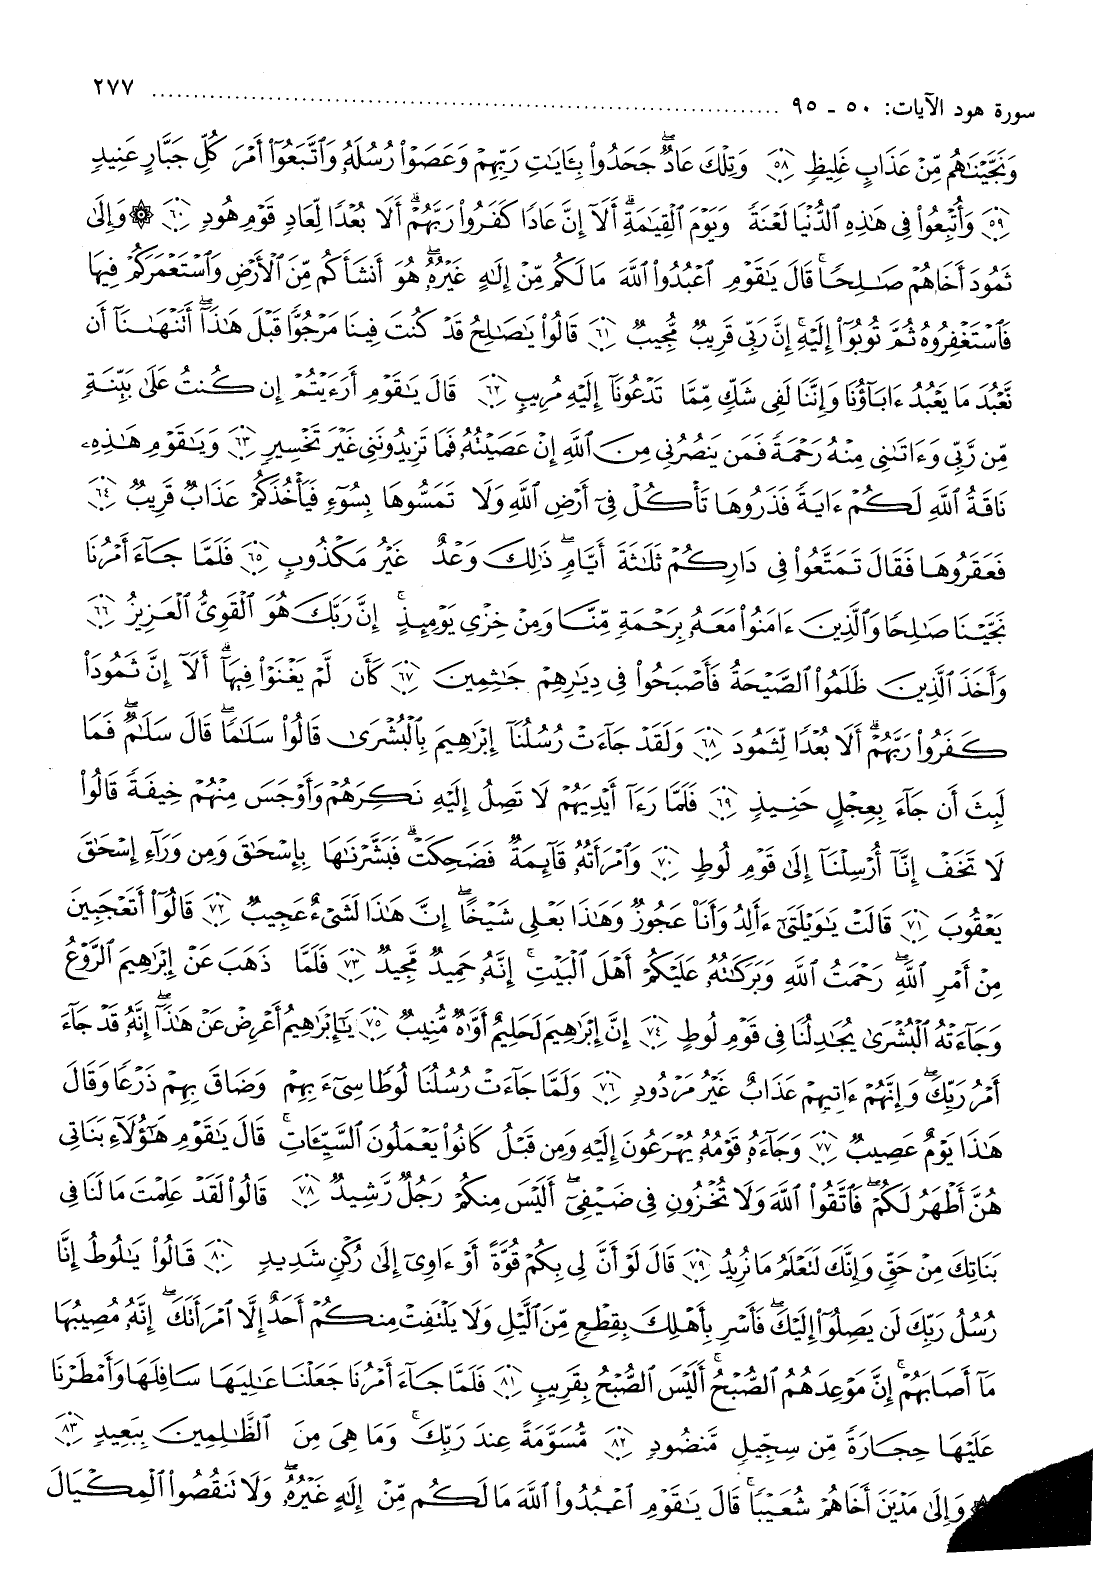 سورة هود الآيات: ٥٠ - ٩٥ ........................ ٢٧٧
وَنَجَّيْنَٰهُم مِّنْ عَذَابٍ غَلِيظٍ ﴿٥٨﴾ وَتِلْكَ عَادٌۖ جَحَدُوا۟ بِـَٔايَٰتِ رَبِّهِمْ وَعَصَوْا۟ رُسُلَهُۥ وَٱتَّبَعُوٓا۟ أَمْرَ كُلِّ جَبَّارٍ عَنِيدٍ
﴿٥٩﴾ وَأُتْبِعُوا۟ فِى هَٰذِهِ ٱلدُّنْيَا لَعْنَةً وَيَوْمَ ٱلْقِيَٰمَةِۗ أَلَآ إِنَّ عَادًا كَفَرُوا۟ رَبَّهُمْۗ أَلَا بُعْدًا لِّعَادٍ قَوْمِ هُودٍ ﴿٦٠﴾ ۞ وَإِلَىٰ
ثَمُودَ أَخَاهُمْ صَٰلِحًاۚ قَالَ يَٰقَوْمِ ٱعْبُدُوا۟ ٱللَّهَ مَا لَكُم مِّنْ إِلَٰهٍ غَيْرُهُۥۖ هُوَ أَنشَأَكُم مِّنَ ٱلْأَرْضِ وَٱسْتَعْمَرَكُمْ فِيهَا
فَٱسْتَغْفِرُوهُ ثُمَّ تُوبُوٓا۟ إِلَيْهِۚ إِنَّ رَبِّى قَرِيبٌ مُّجِيبٌ ﴿٦١﴾ قَالُوا۟ يَٰصَٰلِحُ قَدْ كُنتَ فِينَا مَرْجُوًّا قَبْلَ هَٰذَآۖ أَتَنْهَىٰنَآ أَن
نَّعْبُدَ مَا يَعْبُدُ ءَابَآؤُنَا وَإِنَّنَا لَفِى شَكٍّ مِّمَّا تَدْعُونَآ إِلَيْهِ مُرِيبٍ ﴿٦٢﴾ قَالَ يَٰقَوْمِ أَرَءَيْتُمْ إِن كُنتُ عَلَىٰ بَيِّنَةٍ
مِّن رَّبِّى وَءَاتَىٰنِى مِنْهُ رَحْمَةً فَمَن يَنصُرُنِى مِنَ ٱللَّهِ إِنْ عَصَيْتُهُۥ فَمَا تَزِيدُونَنِى غَيْرَ تَخْسِيرٍ ﴿٦٣﴾ وَيَٰقَوْمِ هَٰذِهِۦ
نَاقَةُ ٱللَّهِ لَكُمْ ءَايَةً فَذَرُوهَا تَأْكُلْ فِىٓ أَرْضِ ٱللَّهِ وَلَا تَمَسُّوهَا بِسُوٓءٍ فَيَأْخُذَكُمْ عَذَابٌ قَرِيبٌ ﴿٦٤﴾
فَعَقَرُوهَا فَقَالَ تَمَتَّعُوا۟ فِى دَارِكُمْ ثَلَٰثَةَ أَيَّامٍۖ ذَٰلِكَ وَعْدٌ غَيْرُ مَكْذُوبٍ ﴿٦٥﴾ فَلَمَّا جَآءَ أَمْرُنَا
نَجَّيْنَا صَٰلِحًا وَٱلَّذِينَ ءَامَنُوا۟ مَعَهُۥ بِرَحْمَةٍ مِّنَّا وَمِنْ خِزْىِ يَوْمِئِذٍۚ إِنَّ رَبَّكَ هُوَ ٱلْقَوِىُّ ٱلْعَزِيزُ ﴿٦٦﴾
وَأَخَذَ ٱلَّذِينَ ظَلَمُوا۟ ٱلصَّيْحَةُ فَأَصْبَحُوا۟ فِى دِيَٰرِهِمْ جَٰثِمِينَ ﴿٦٧﴾ كَأَن لَّمْ يَغْنَوْا۟ فِيهَآۗ أَلَآ إِنَّ ثَمُودَا۟
كَفَرُوا۟ رَبَّهُمْۗ أَلَا بُعْدًا لِّثَمُودَ ﴿٦٨﴾ وَلَقَدْ جَآءَتْ رُسُلُنَآ إِبْرَٰهِيمَ بِٱلْبُشْرَىٰ قَالُوا۟ سَلَٰمًاۖ قَالَ سَلَٰمٌۖ فَمَا
لَبِثَ أَن جَآءَ بِعِجْلٍ حَنِيذٍ ﴿٦٩﴾ فَلَمَّا رَءَآ أَيْدِيَهُمْ لَا تَصِلُ إِلَيْهِ نَكِرَهُمْ وَأَوْجَسَ مِنْهُمْ خِيفَةً قَالُوا۟
لَا تَخَفْ إِنَّآ أُرْسِلْنَآ إِلَىٰ قَوْمِ لُوطٍ ﴿٧٠﴾ وَٱمْرَأَتُهُۥ قَآئِمَةٌ فَضَحِكَتْ فَبَشَّرْنَٰهَا بِإِسْحَٰقَ وَمِن وَرَآءِ إِسْحَٰقَ
يَعْقُوبَ ﴿٧١﴾ قَالَتْ يَٰوَيْلَتَىٰٓ ءَأَلِدُ وَأَنَا۠ عَجُوزٌ وَهَٰذَا بَعْلِى شَيْخًاۖ إِنَّ هَٰذَا لَشَىْءٌ عَجِيبٌ ﴿٧٢﴾ قَالُوٓا۟ أَتَعْجَبِينَ
مِنْ أَمْرِ ٱللَّهِۖ رَحْمَتُ ٱللَّهِ وَبَرَكَٰتُهُۥ عَلَيْكُمْ أَهْلَ ٱلْبَيْتِۚ إِنَّهُۥ حَمِيدٌ مَّجِيدٌ ﴿٧٣﴾ فَلَمَّا ذَهَبَ عَنْ إِبْرَٰهِيمَ ٱلرَّوْعُ
وَجَآءَتْهُ ٱلْبُشْرَىٰ يُجَٰدِلُنَا فِى قَوْمِ لُوطٍ ﴿٧٤﴾ إِنَّ إِبْرَٰهِيمَ لَحَلِيمٌ أَوَّٰهٌ مُّنِيبٌ ﴿٧٥﴾ يَٰٓإِبْرَٰهِيمُ أَعْرِضْ عَنْ هَٰذَآۖ إِنَّهُۥ قَدْ جَآءَ
أَمْرُ رَبِّكَۖ وَإِنَّهُمْ ءَاتِيهِمْ عَذَابٌ غَيْرُ مَرْدُودٍ ﴿٧٦﴾ وَلَمَّا جَآءَتْ رُسُلُنَا لُوطًا سِىٓءَ بِهِمْ وَضَاقَ بِهِمْ ذَرْعًا وَقَالَ
هَٰذَا يَوْمٌ عَصِيبٌ ﴿٧٧﴾ وَجَآءَهُۥ قَوْمُهُۥ يُهْرَعُونَ إِلَيْهِ وَمِن قَبْلُ كَانُوا۟ يَعْمَلُونَ ٱلسَّيِّـَٔاتِۚ قَالَ يَٰقَوْمِ هَٰٓؤُلَآءِ بَنَاتِى
هُنَّ أَطْهَرُ لَكُمْۖ فَٱتَّقُوا۟ ٱللَّهَ وَلَا تُخْزُونِ فِى ضَيْفِىٓۖ أَلَيْسَ مِنكُمْ رَجُلٌ رَّشِيدٌ ﴿٧٨﴾ قَالُوا۟ لَقَدْ عَلِمْتَ مَا لَنَا فِى
بَنَاتِكَ مِنْ حَقٍّ وَإِنَّكَ لَتَعْلَمُ مَا نُرِيدُ ﴿٧٩﴾ قَالَ لَوْ أَنَّ لِى بِكُمْ قُوَّةً أَوْ ءَاوِىٓ إِلَىٰ رُكْنٍ شَدِيدٍ ﴿٨٠﴾ قَالُوا۟ يَٰلُوطُ إِنَّا
رُسُلُ رَبِّكَ لَن يَصِلُوٓا۟ إِلَيْكَۖ فَأَسْرِ بِأَهْلِكَ بِقِطْعٍ مِّنَ ٱلَّيْلِ وَلَا يَلْتَفِتْ مِنكُمْ أَحَدٌ إِلَّا ٱمْرَأَتَكَۖ إِنَّهُۥ مُصِيبُهَا
مَآ أَصَابَهُمْۚ إِنَّ مَوْعِدَهُمُ ٱلصُّبْحُۚ أَلَيْسَ ٱلصُّبْحُ بِقَرِيبٍ ﴿٨١﴾ فَلَمَّا جَآءَ أَمْرُنَا جَعَلْنَا عَٰلِيَهَا سَافِلَهَا وَأَمْطَرْنَا
عَلَيْهَا حِجَارَةً مِّن سِجِّيلٍ مَّنضُودٍ ﴿٨٢﴾ مُّسَوَّمَةً عِندَ رَبِّكَۖ وَمَا هِىَ مِنَ ٱلظَّٰلِمِينَ بِبَعِيدٍ ﴿٨٣﴾
۞ وَإِلَىٰ مَدْيَنَ أَخَاهُمْ شُعَيْبًاۚ قَالَ يَٰقَوْمِ ٱعْبُدُوا۟ ٱللَّهَ مَا لَكُم مِّنْ إِلَٰهٍ غَيْرُهُۥۖ وَلَا تَنقُصُوا۟ ٱلْمِكْيَالَ